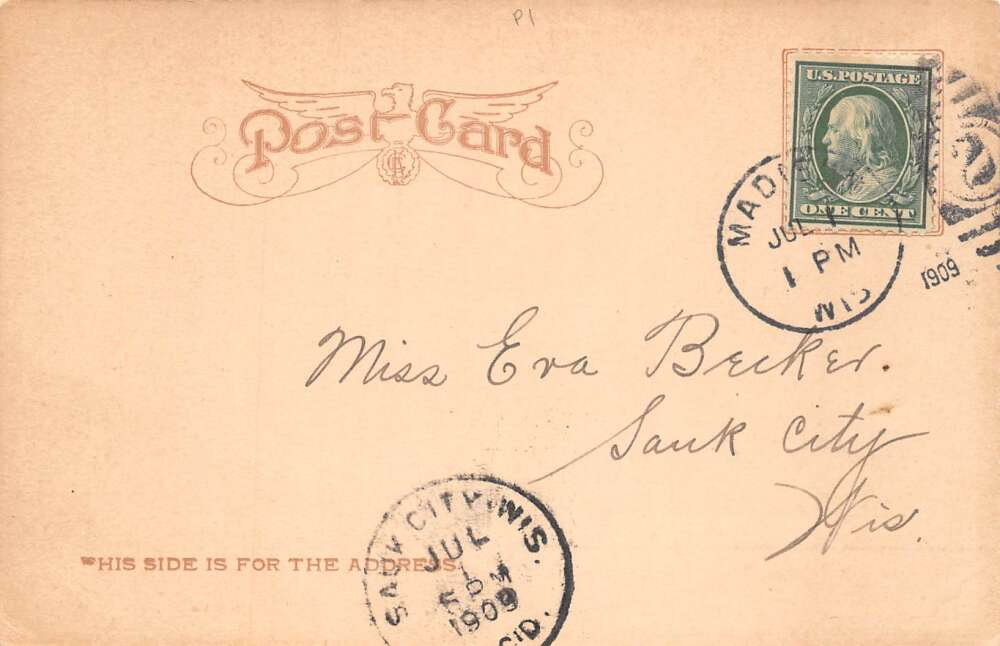 P1
Post Card
U.S. POSTAGE
ONE CENT
MADISON
JUL 1
1 PM
WIS
1909
Miss Eva Becker.
Sauk City
Wis.
THIS SIDE IS FOR THE ADDRESS.
SAUK CITY, WIS.
JUL
1
PM
1909